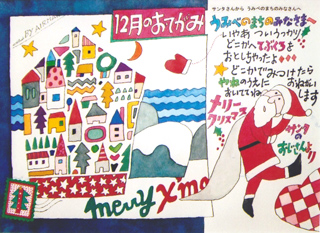 12月のおてがみ
サンタさんから うみべのまちのみなさんへ
うみべのまちのみなさまー
いやあ ついうっかり
どこかへ てぶくろを
おとしちゃったよ
どこかでみつけたら
やねのうえに おねがい
おいていてね
します
メリー
クリスマス
サンタの
おじさんより
merry X'mas